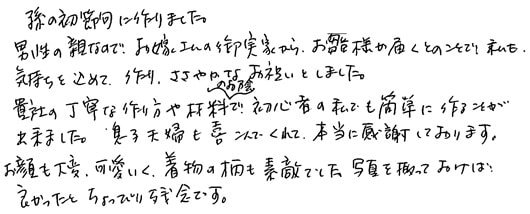 孫の初節句に作りました。
男性の親なので、お嫁さんの御実家から、お雛様が届くとのことで、私も
気持ちを込めて、作り、ささやかなお祝いとしました。
のお陰
貴社の丁寧な作り方や材料で、初心者の私でも簡単に作ることが
出来ました。息子夫婦も喜こんでくれて、本当に感謝しております。
お顔も大変、可愛いく、着物の柄も素敵でした。写真を撮っておけば
良かったとちょっぴり残念です。